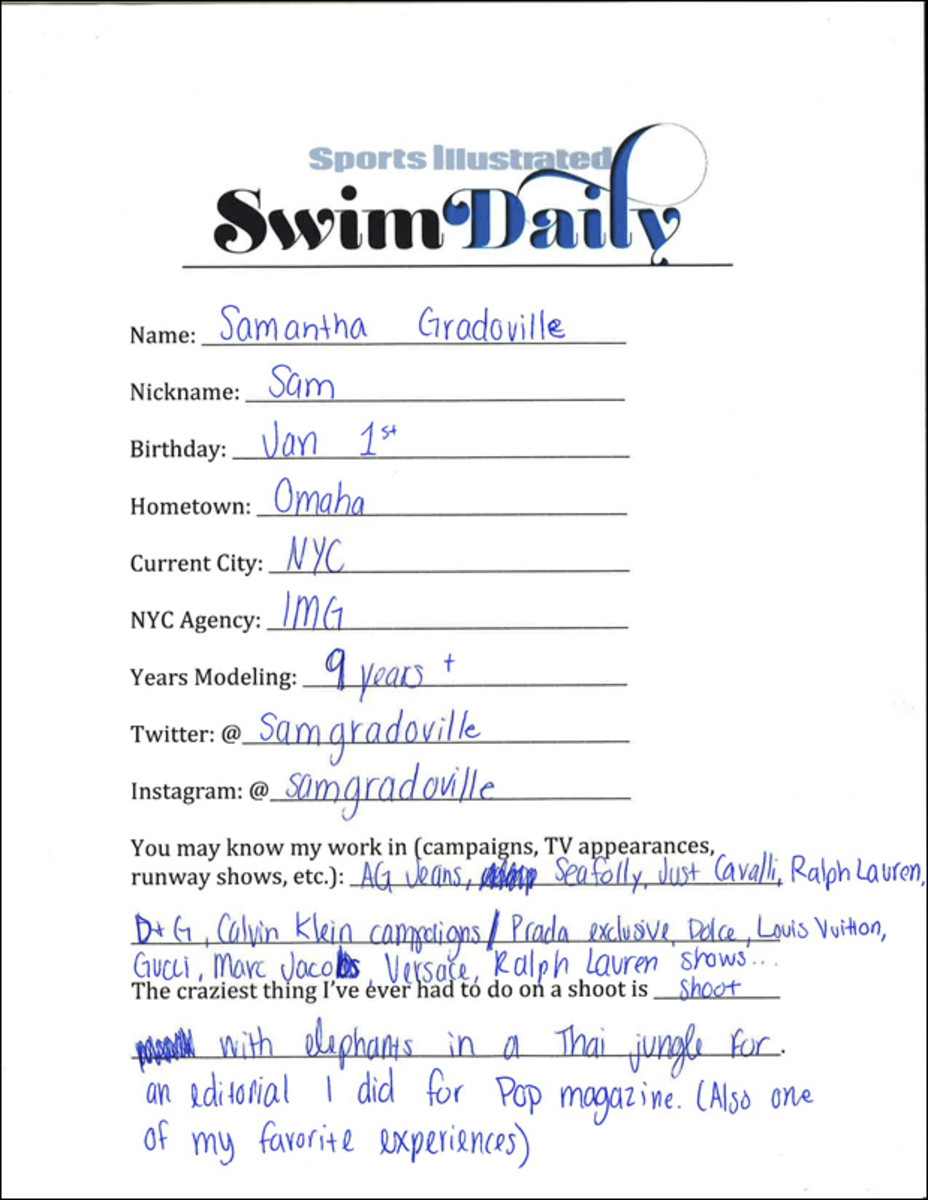 Sports Illustrated
SwimDaily
Name: Samantha Gradoville
Nickname: Sam
Birthday: Jan 1st
Hometown: Omaha
Current City: NYC
NYC Agency: IMG
Years Modeling: 9 years +
Twitter: @ samgradoville
Instagram: @ samgradoville
You may know my work in (campaigns, TV appearances,
runway shows, etc.): AG Jeans, Seafolly, Just Cavalli, Ralph Lauren,
D+G, Calvin Klein campaigns / Prada exclusive, Dolce, Louis Vuitton,
Gucci, Marc Jacobs, Versace, Ralph Lauren shows...
The craziest thing I've ever had to do on a shoot is shoot
with elephants in a Thai jungle for.
an editorial I did for Pop magazine. (Also one
of my favorite experiences)